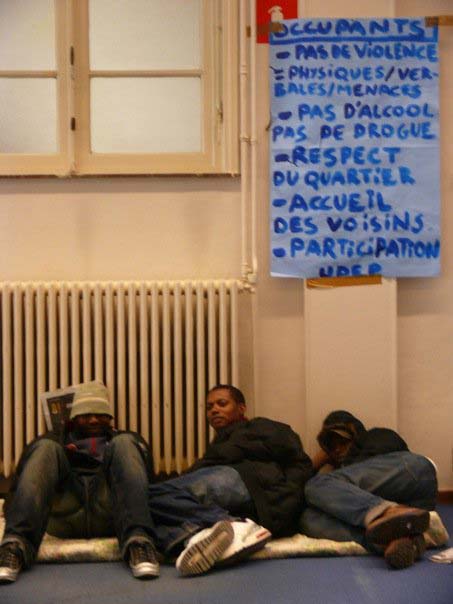 OCCUPANTS
- PAS DE VIOLENCE
= PHYSIQUES/VER-
BALES/MENACES
- PAS D'ALCOOL
PAS DE DROGUE
- RESPECT
DU QUARTIER
- ACCUEIL
DES VOISINS
- PARTICIPATION
UDEP